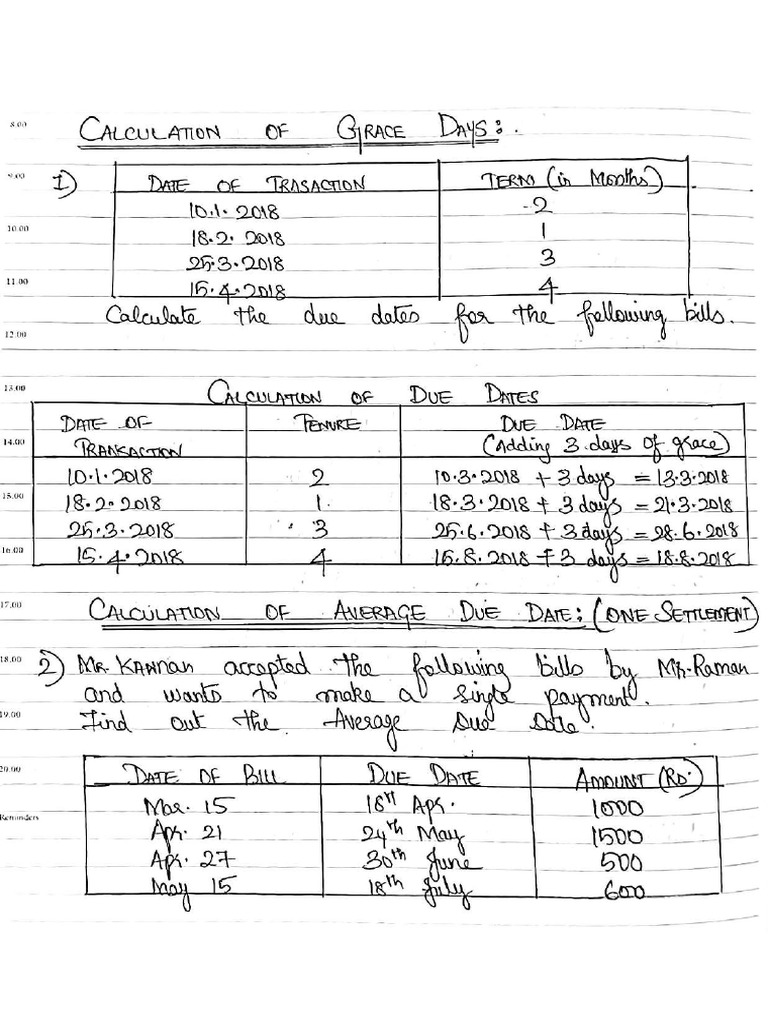 8.00 CALCULATION OF GRACE DAYS:
9.00 1) DATE OF TRASACTION TERM (in Months)
10.1.2018 2
10.00 18.2.2018 1
25.3.2018 3
11.00 15.4.2018 4
Calculate the due dates for the following bills.
12.00
13.00 CALCULATION OF DUE DATES
DATE OF TENURE DUE DATE
14.00 TRANSACTION (Adding 3 days of grace)
10.1.2018 2 10.3.2018 + 3 days = 13.3.2018
15.00 18.2.2018 1 18.3.2018 + 3 days = 21.3.2018
25.3.2018 3 25.6.2018 + 3 days = 28.6.2018
16.00 15.4.2018 4 15.8.2018 + 3 days = 18.8.2018
17.00 CALCULATION OF AVERAGE DUE DATE: (ONE SETTLEMENT)
18.00 2) Mr. KANNAN accepted the following bills by Mr. Raman
and wants to make a single payment.
19.00 Find out the Average Due Date.
20.00 DATE OF BILL DUE DATE AMOUNT (RS.)
Mar. 15 18th Apr. 1000
Reminders Apr. 21 24th May 1500
Apr. 27 30th June 500
May 15 18th July 600